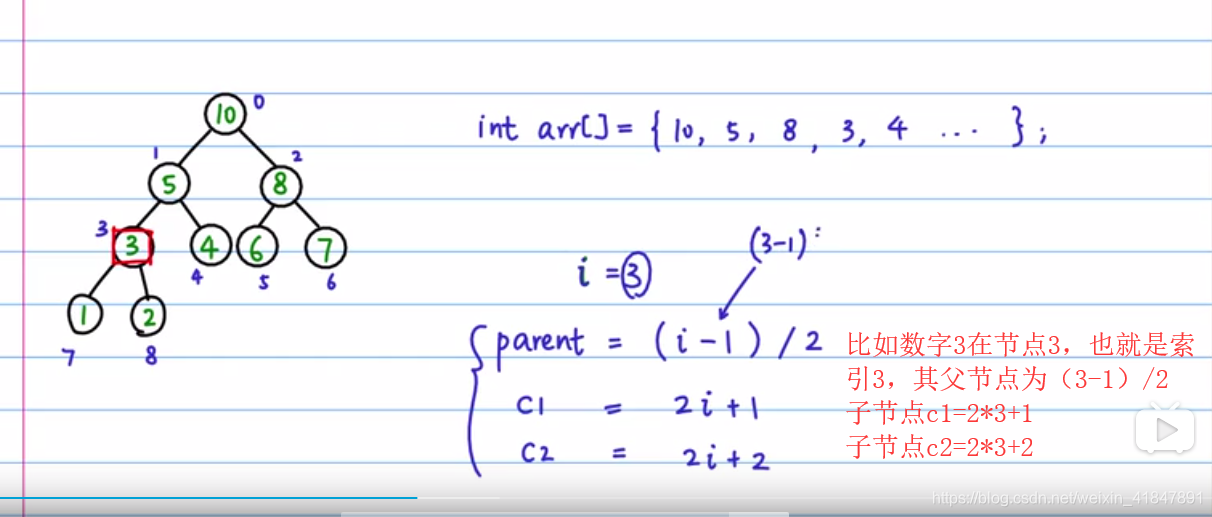 10 0
1 2
5 8
3
3 4 6 7
4 5 6
1 2
7 8
int arr[] = { 10, 5, 8, 3, 4 ... };
(3-1):
i = 3
parent = (i-1)/2
c1 = 2i+1
c2 = 2i+2
比如数字3在节点3，也就是索
引3，其父节点为（3-1）/2
子节点c1=2*3+1
子节点c2=2*3+2
https://blog.csdn.net/weixin_41847891